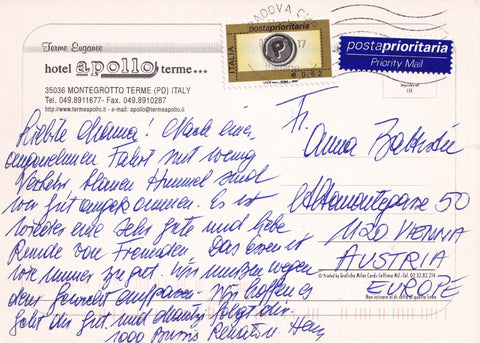 Terme Euganee
hotel apollo terme***
35036 MONTEGROTTO TERME (PD) ITALY
Tel. 049.8911677- Fax. 049.8910287
http://www.termeapollo.it - e-mail: apollo@termeapollo.it
PADOVA
17
ITALIA
postaprioritaria
P
€ 0,62
postaprioritaria
Priority Mail
Liebste Mamma! Nach einer
angenehmen Fahrt mit wenig
Verkehr, blauen Himmel sind
wir gut angekommen. Es ist
wieder eine sehr gute und liebe
Runde von Freunden. Das Essen ist
wie immer zu gut. Wir müssen wegen
dem Gewicht aufpassen. Wir hoffen es
geht dir gut und folgt dir.
1000 Bussis Renate u.
Fr.
Anna
50
1120 VIENNA
AUSTRIA
EUROPE
© Printed by Grafiche Milan Cards Cartilmo Mi.-Tel. 02.32.82.214
Non scrivere al di sotto di questa linea